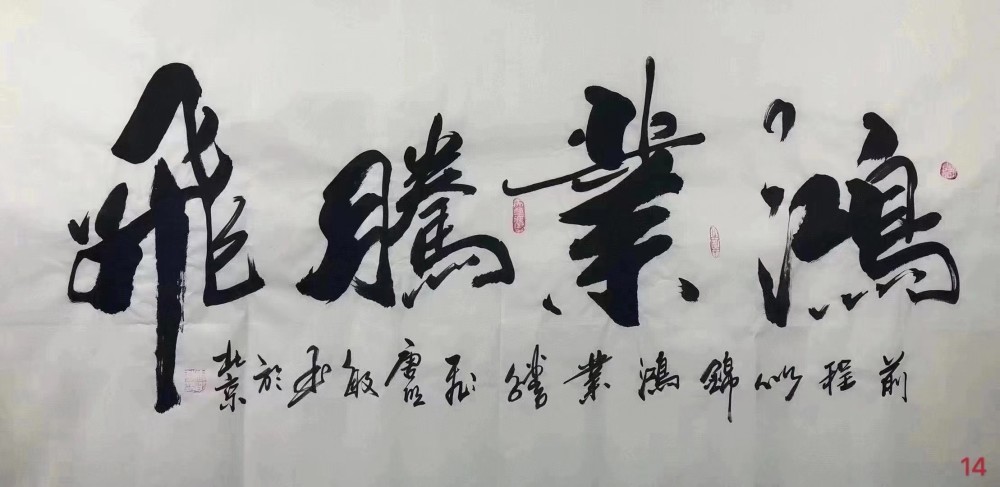 鴻業騰飛
前程似錦鴻業騰飛唐敏书於北京
14